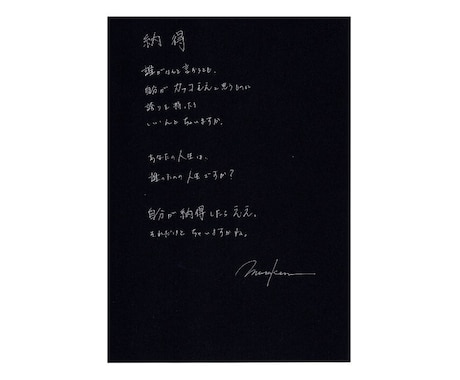 納得
誰がなんと言おうとも、
自分がカッコええと思うものに
誇りを持ったら
いいんとちゃいますか。
あなたの人生は、
誰のための人生ですか？
自分が納得したらええ。
それだけとちゃいますかね。